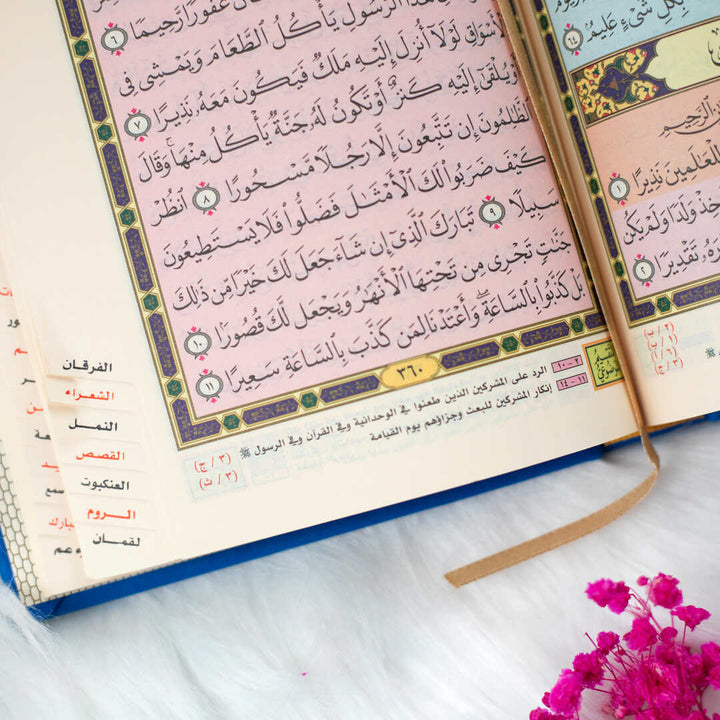 بِكُلِّ شَىْءٍ عَلِيمٌ ٦٤
الرَّحِيمِ
لِلْعَـٰلَمِينَ نَذِيرًا ١
وَلَدًا وَلَمْ يَكُن
تَقْدِيرًا ٢
غَفُورًا رَّحِيمًا ٦
هَـٰذَا ٱلرَّسُولِ يَأْكُلُ ٱلطَّعَامَ وَيَمْشِى فِى
ٱلْأَسْوَاقِ لَوْلَآ أُنزِلَ إِلَيْهِ مَلَكٌ فَيَكُونَ مَعَهُۥ نَذِيرًا ٧
أَوْ يُلْقَىٰٓ إِلَيْهِ كَنزٌ أَوْ تَكُونُ لَهُۥ جَنَّةٌ يَأْكُلُ مِنْهَا ۚ وَقَالَ
ٱلظَّـٰلِمُونَ إِن تَتَّبِعُونَ إِلَّا رَجُلًا مَّسْحُورًا ٨ ٱنظُرْ
كَيْفَ ضَرَبُوا۟ لَكَ ٱلْأَمْثَـٰلَ فَضَلُّوا۟ فَلَا يَسْتَطِيعُونَ
سَبِيلًا ٩ تَبَارَكَ ٱلَّذِىٓ إِن شَآءَ جَعَلَ لَكَ خَيْرًا مِّن ذَٰلِكَ
جَنَّـٰتٍ تَجْرِى مِن تَحْتِهَا ٱلْأَنْهَـٰرُ وَيَجْعَل لَّكَ قُصُورًا ١٠
بَلْ كَذَّبُوا۟ بِٱلسَّاعَةِ ۖ وَأَعْتَدْنَا لِمَن كَذَّبَ بِٱلسَّاعَةِ سَعِيرًا ١١
٣٦٠
٢ - ١٠ الرد على المشركين الذين طعنوا في الوحدانية وفي القرآن وفي الرسول ﷺ
١١ - ١٤ إنكار المشركين للبعث وجزاؤهم يوم القيامة
(٣ / ج)
(٣ / ث)
الفرقان
الشعراء
النمل
القصص
العنكبوت
الروم
لقمان